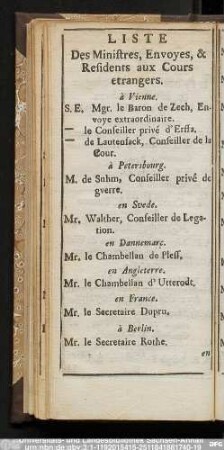 LISTE
Des Ministres, Envoyes, &
Residents aux Cours
etrangers.
à Vienne.
S. E. Mgr. le Baron de Zech, En-
voye extraordinaire.
— le Conseiller privé d'Erffa.
— de Lautensack, Conseiller de la
Cour.
à Petersbourg.
M. de Suhm, Conseiller privé de
gverre.
en Svede.
Mr. Walther, Conseiller de Lega-
tion.
en Dannemarc.
Mr. le Chambellan de Pless,
en Angleterre.
Mr. le Chambellan d'Utterodt.
en France.
Mr. le Secretaire Dupru,
à Berlin.
Mr. le Secretaire Rothe.
en
urn:nbn:de:gbv:3:1-1192015415-2511841881740-19